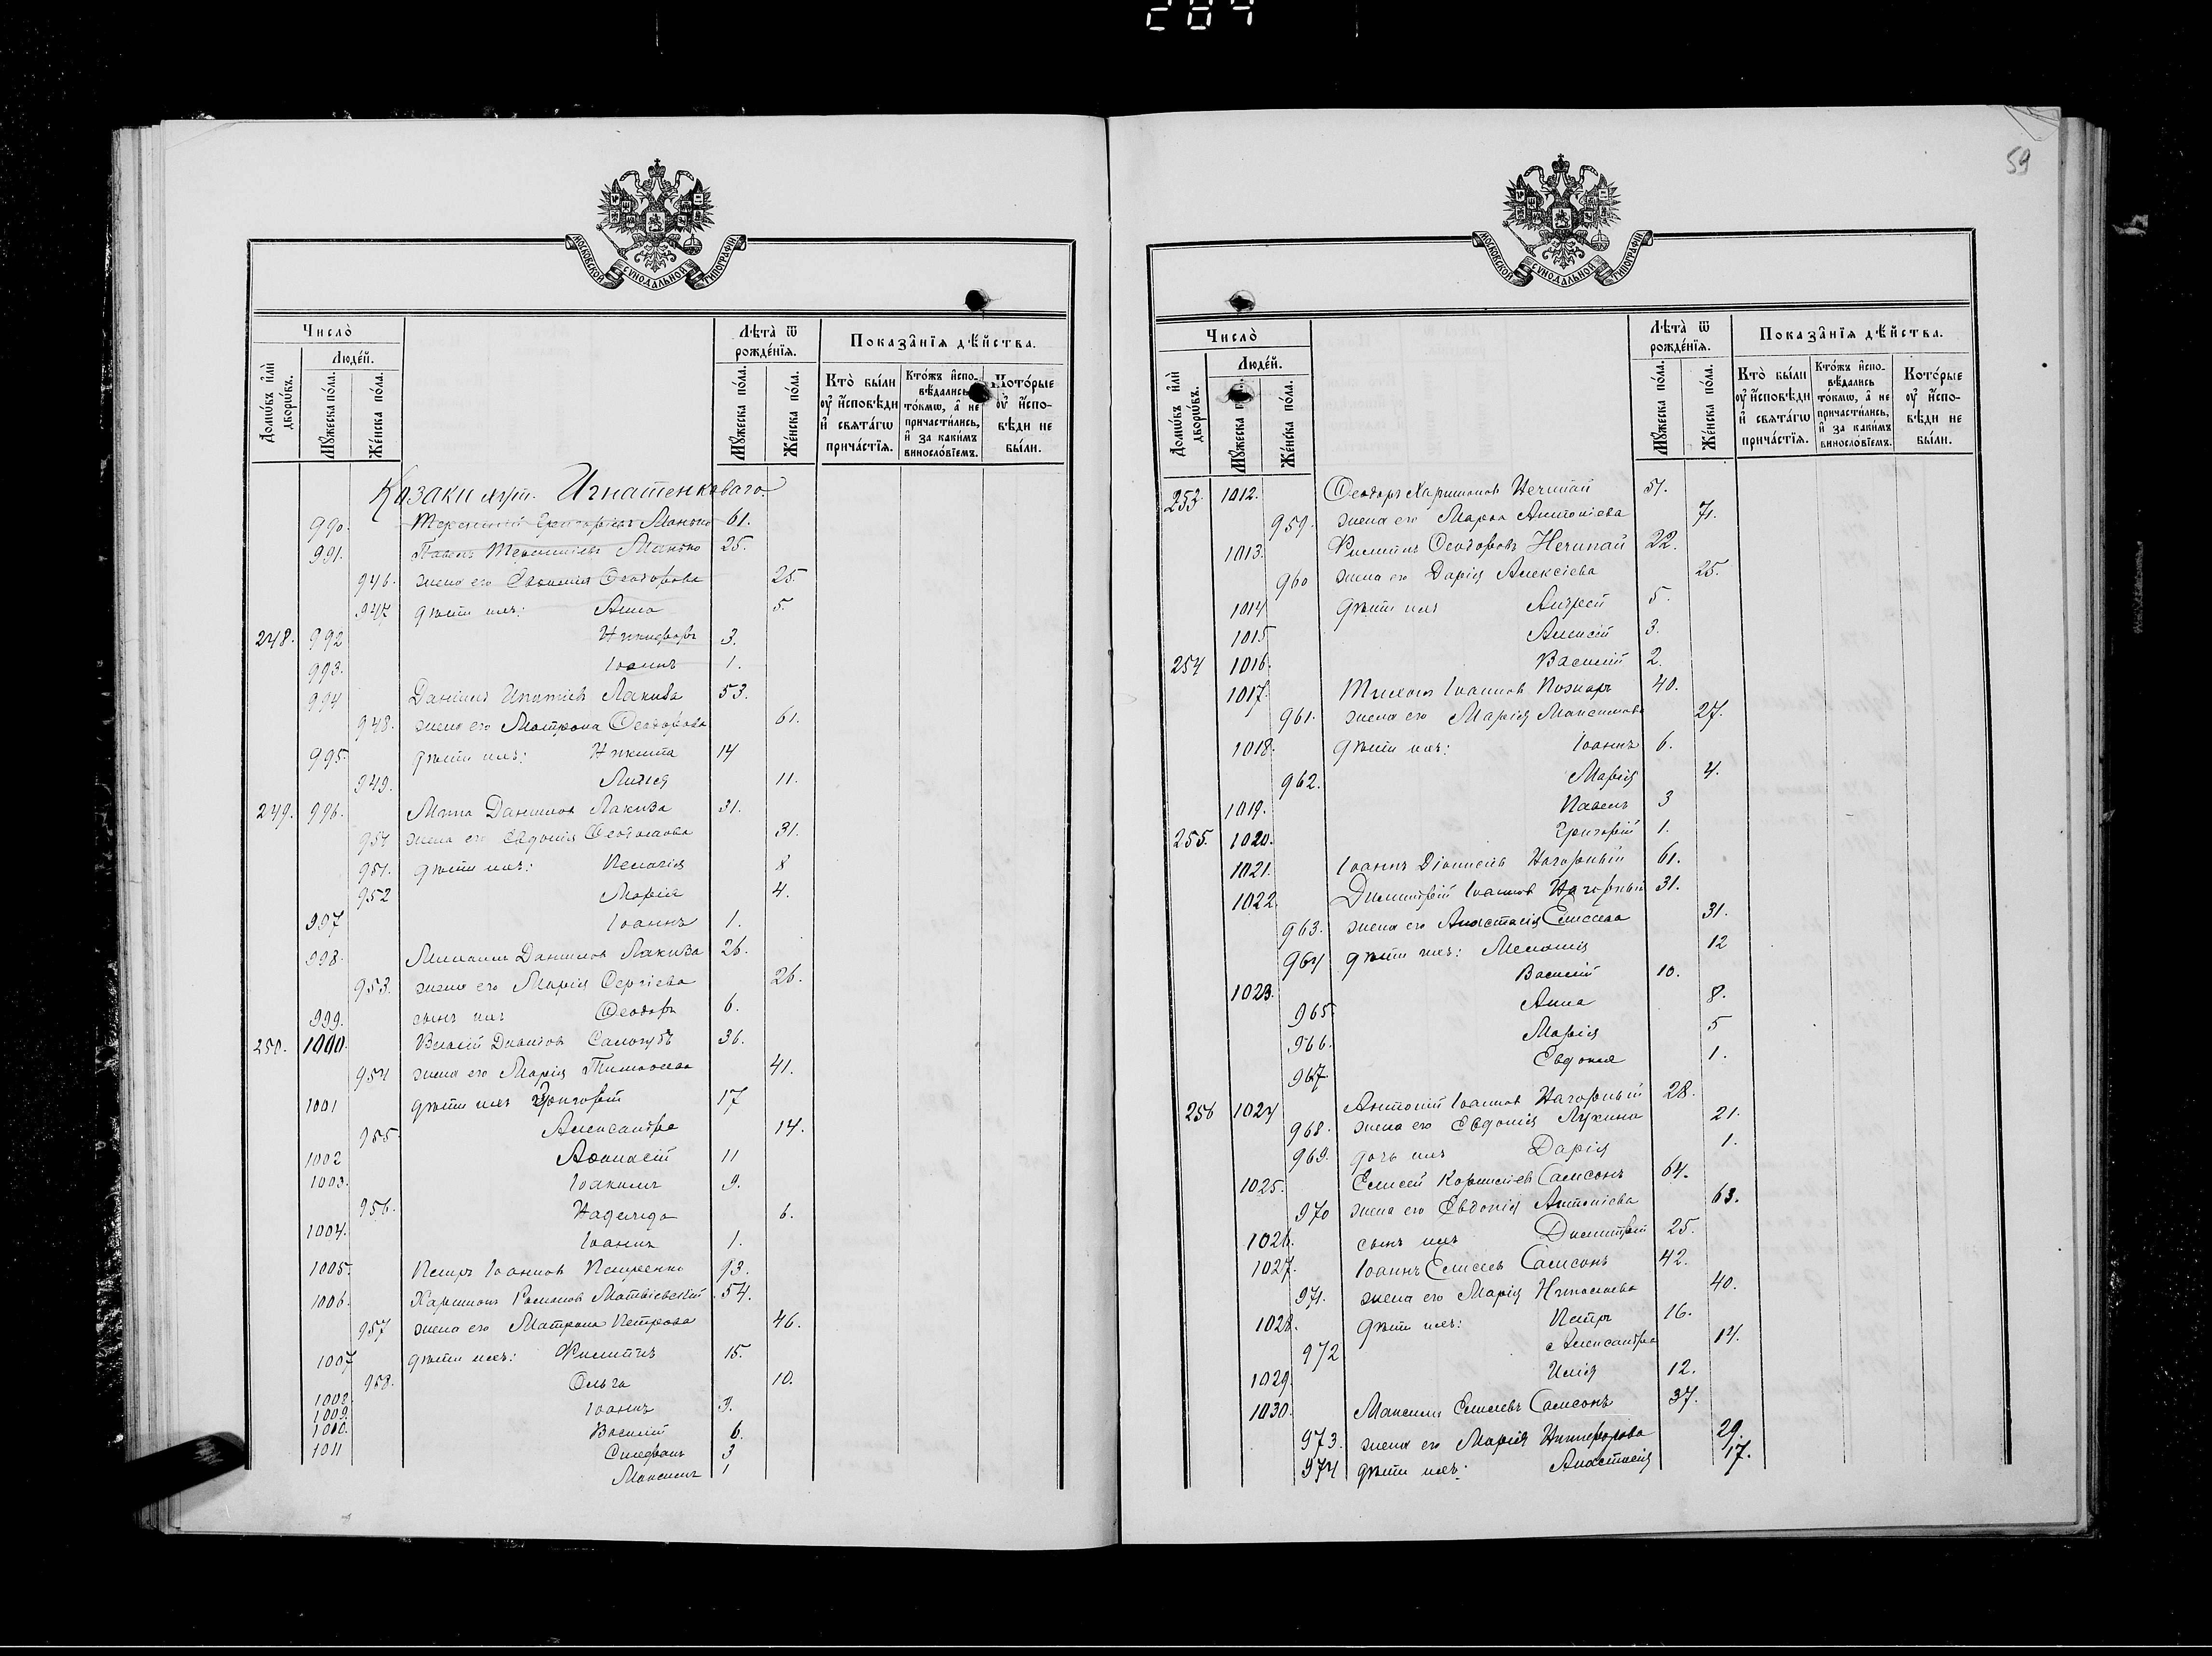 284
МОСКОВСКОЙ СѴНОДАЛЬНОЙ ТИПОГРАФІИ
Число̀
Домѡ́въ и҆лѝ дворѡ́въ.
Люде́й.
Мꙋ́жеска по́ла.
Же́нска по́ла.
Лѣта̀ ѿ рожде́нїѧ.
Мꙋ́жеска по́ла.
Же́нска по́ла.
Показа̂нїѧ дѣ́йства.
Кто̀ бы́ли оу҆ и҆сповѣди и҆ свѧта́гѡ прича́стїѧ.
Кто́жъ и҆сповѣдались то́кмѡ, а҆ не причасти́лись, и҆ за каки́мъ винословїемъ.
Кото́рые оу҆ и҆сповѣди не бы́ли.
Козаки хут. Игнатенковаго
990. Терентій Григорьев Манько 61.
991. Павелъ Терентіевъ Манько 25.
946. жена его Евфимія Ѳеодорова 25.
947 дѣти ихъ: Анна 5.
248. 992 Никифоръ 3.
993. Іоаннъ 1.
994 Даніилъ Ипатіев Лакиза 53.
948. жена его Матрона Ѳеодорова 61.
995. дѣти ихъ: Никита 14
949. Лидія 11.
249. 996. Данилов Лакиза 31.
950 жена его Евдокія 31.
951. дѣти ихъ: Пелагія 8
952 Марія 4.
997 Іоаннъ 1.
998. Михаилъ Данилов Лакиза 26.
953. жена его Марія Сергіева 26.
999. сынъ ихъ Ѳеодоръ 6.
250. 1000. Давидов 36.
954 жена его Марія Тимоѳеева 41.
1001 дѣти ихъ Григорій 17
955. Александра 14.
1002 Аѳанасій 11
1003. Іоакимъ 9.
956. Надежда 6.
1004. Іоаннъ 1.
1005. Петръ Іоаннов Петренко 13.
1006. Харитонъ Матвіевскій 54.
957 жена его Матрона Петрова 46.
1007 дѣти ихъ: Филиппъ 15.
958. Ольга 10.
1008. Іоаннъ 9.
1009. Василій 6.
1010. Стефанъ 3
1011 Максимъ 1
59
МОСКОВСКОЙ СѴНОДАЛЬНОЙ ТИПОГРАФІИ
Число̀
Домѡ́въ и҆лѝ дворѡ́въ.
Люде́й.
Мꙋ́жеска по́ла.
Же́нска по́ла.
Лѣта̀ ѿ рожде́нїѧ.
Мꙋ́жеска по́ла.
Же́нска по́ла.
Показа̂нїѧ дѣ́йства.
Кто̀ бы́ли оу҆ и҆сповѣди и҆ свѧта́гѡ прича́стїѧ.
Кто́жъ и҆сповѣдались то́кмѡ, а҆ не причасти́лись, и҆ за каки́мъ винословїемъ.
Кото́рые оу҆ и҆сповѣди не бы́ли.
253. 1012. Ѳеодоръ Харитонов Нечипай 51.
959. жена его Марѳа Антоніева 71.
1013. Филиппъ Ѳеодоровъ Нечипай 22.
960 жена его Дарія Алексіева 25.
1014 дѣти ихъ Андрей 5.
1015 Алексій 3.
254 1016. Василій 2.
1017. Тихонъ Іоаннов Пожаръ 40.
961. жена его Марія Максимова 27.
1018. дѣти ихъ: Іоаннъ 6.
962. Марія 4.
1019. Павелъ 3
255. 1020. Григорій 1.
1021. Іоаннъ Діонисіев Нагорный 61.
1022. Димитрій Іоаннов Нагорный 31.
963. жена его Анастасія Елисеева 31.
964 дѣти ихъ: Меланія 12
1023. Василій 10.
965. Анна 8.
966. Марія 5
967. Евдокія 1.
256 1024 Антоній Іоаннов Нагорный 28.
968. жена его Евдокія Лукина 21.
969. дочь ихъ Дарія 1.
1025. Елисей Корниліев Самсонъ 64.
970 жена его Евдокія Антоніева 63.
1026. сынъ ихъ Димитрій 25.
1027. Іоаннъ Елисеев Самсонъ 42.
971. жена его Марія Николаева 40.
1028. дѣти ихъ: Петръ 16.
972 Александра 14.
1029. Илія 12.
1030. Максимъ Елисеевъ Самсонъ 37.
973. жена его Марія Никифорова 29.
974 дѣти ихъ: Анастасія 17.